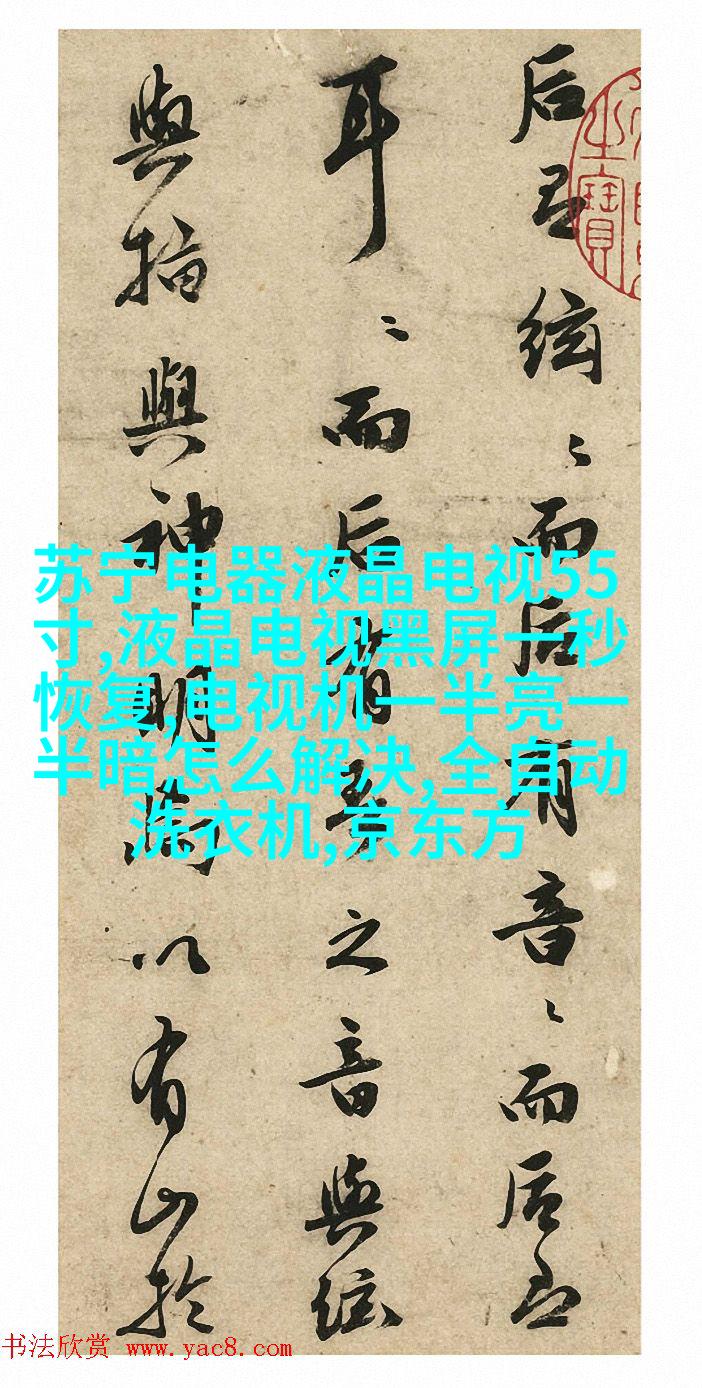 后有弦〻而后有音〻而后和
耳〻而后有琴之音與弦
與指與神明焉以有山於
之寶
苏宁电器液晶电视55
寸,液晶电视黑屏一秒
恢复,电视机一半亮一
半暗怎么解决,全自动
洗衣机,京东方
书法欣赏 www.yac8.com